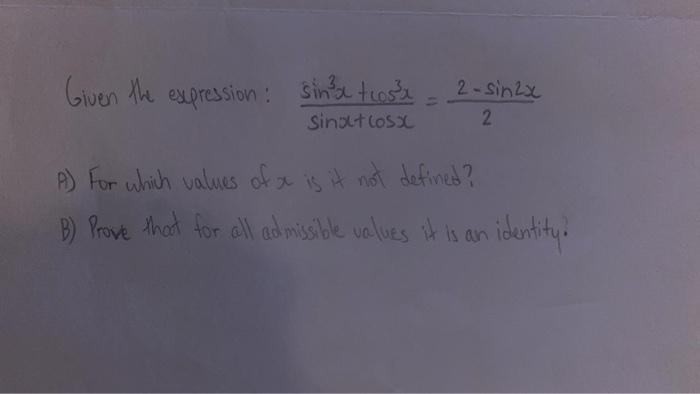 Given the expression: sin³x + cos³x / sinx + cosx = 2 - sin2x / 2
A) For which values of x is it not defined?
B) Prove that for all admissible values it is an identity!